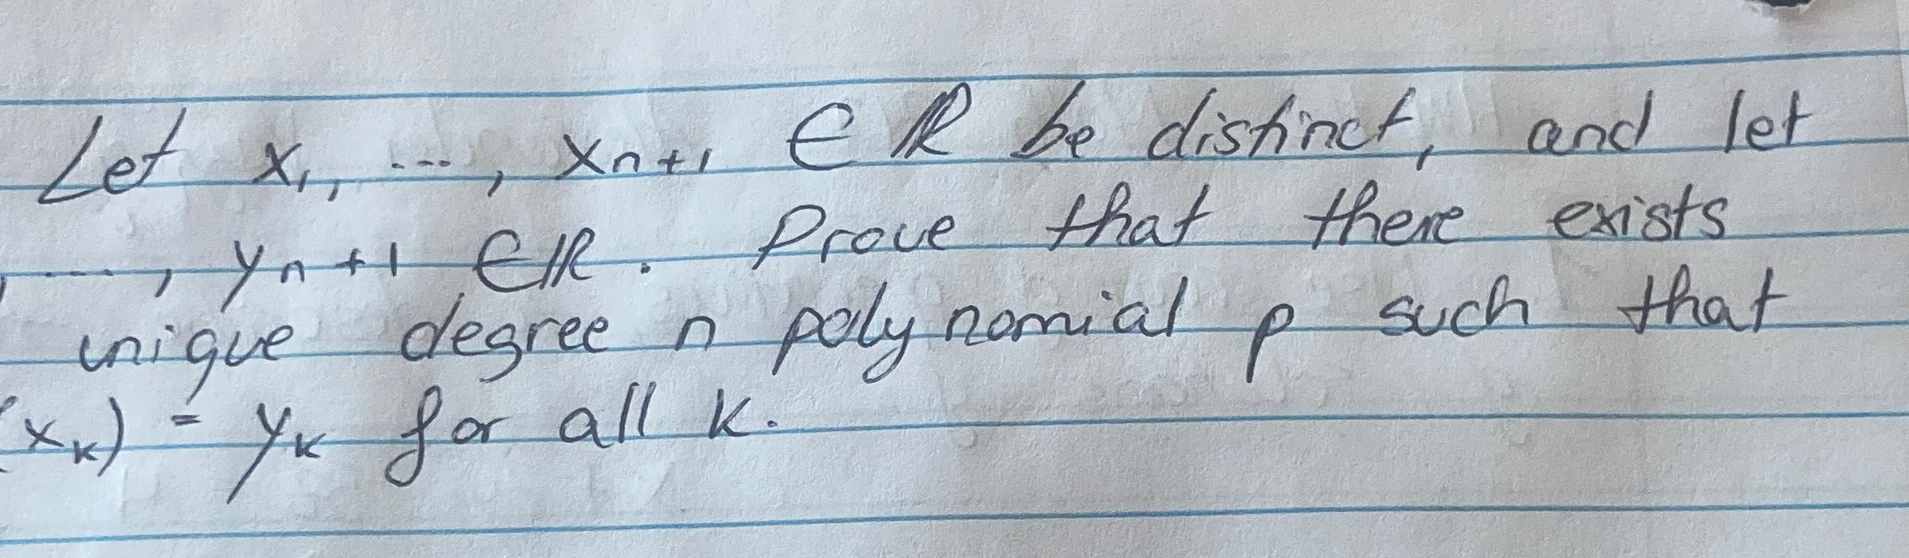 Let x₁, ..., xₙ₊₁ ∈ ℝ be distinct, and let
, ..., yₙ₊₁ ∈ ℝ. Prove that there exists
unique degree n polynomial p such that
(xₖ) = yₖ for all k.